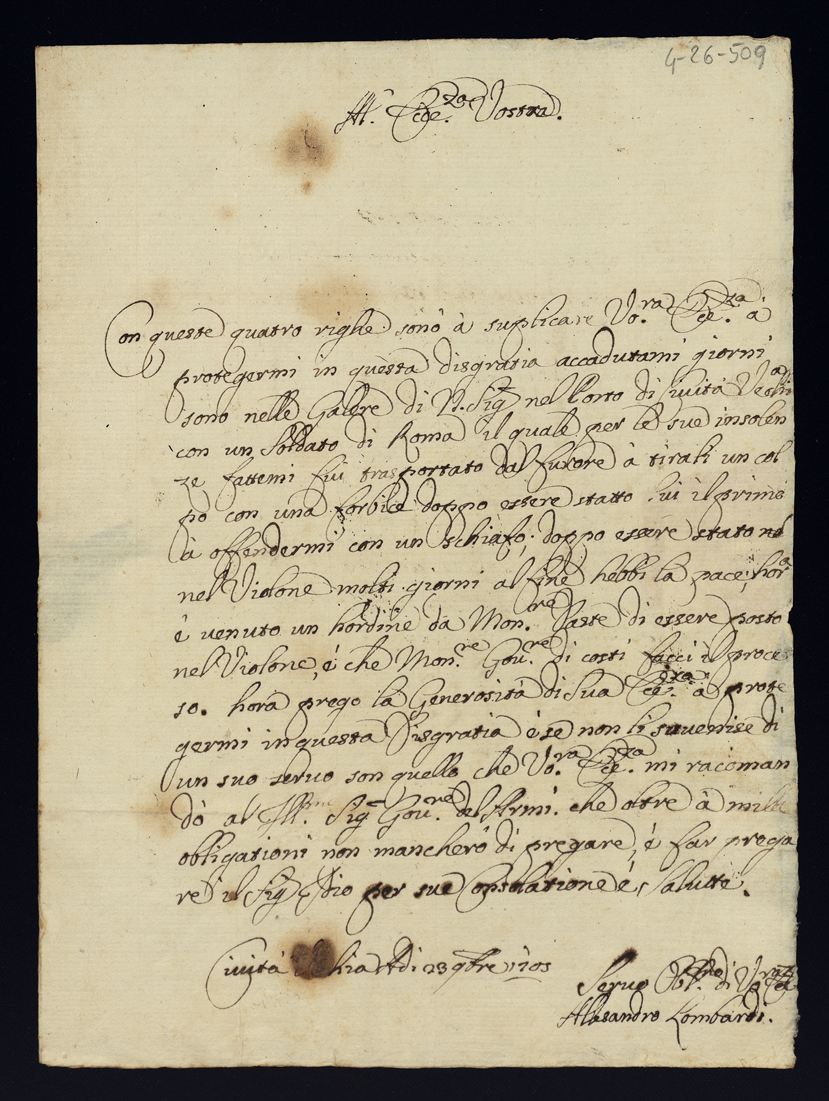 4-26-509
All.ª Ecc.za Vostra.
Con queste quatro righe sonò à suplicare Vo.ra Ecc.za à
protegermi in questa disgratia accadutami giorni
sono nelle Galere di N. Sig.re nel Porto di Civita Vechia
con un Soldato di Roma il quale per le sue insolen
ze fattemi fui trasportato dal furore à tirali un col
pò con una forbice doppo essere statto lui il primo
à offendermi con un schiafo; doppo essere stato
nel Violone molti giorni al fine hebbi la pace; hora
è venuto un hordine da Mon.re Paste di essere posto
nel Violone, é che Mon.re Gov.re di costi facci il proce
so. hora prego la Generosità di Sua Ecc.za à prote
germi in questa disgratia é se non li suvenise di
un suo servo son quello che Vo.ra Ecc.za mi racoman
dò al Ill.mo Sig.r Gov.re del Armi. che oltre à mille
obligationi non mancherò di pregare, é far prega
re il Sig.re Idio per sue Consolatione é Salutte.
Civitá Vechia Adi 23 9bre 1703
Servo Obl.mo di Vo.ra Ecc.za
Allesandro Lombardi.